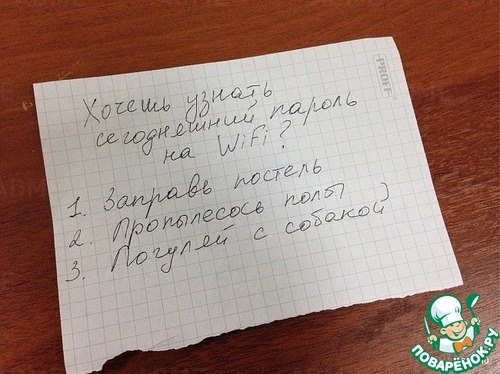 PROFF
Хочешь узнать
сегодняшний пароль
на WiFi?
1. Заправь постель
2. Пропылесось полы
3. Погуляй с собакой
ПОВАРЁНОК.РУ